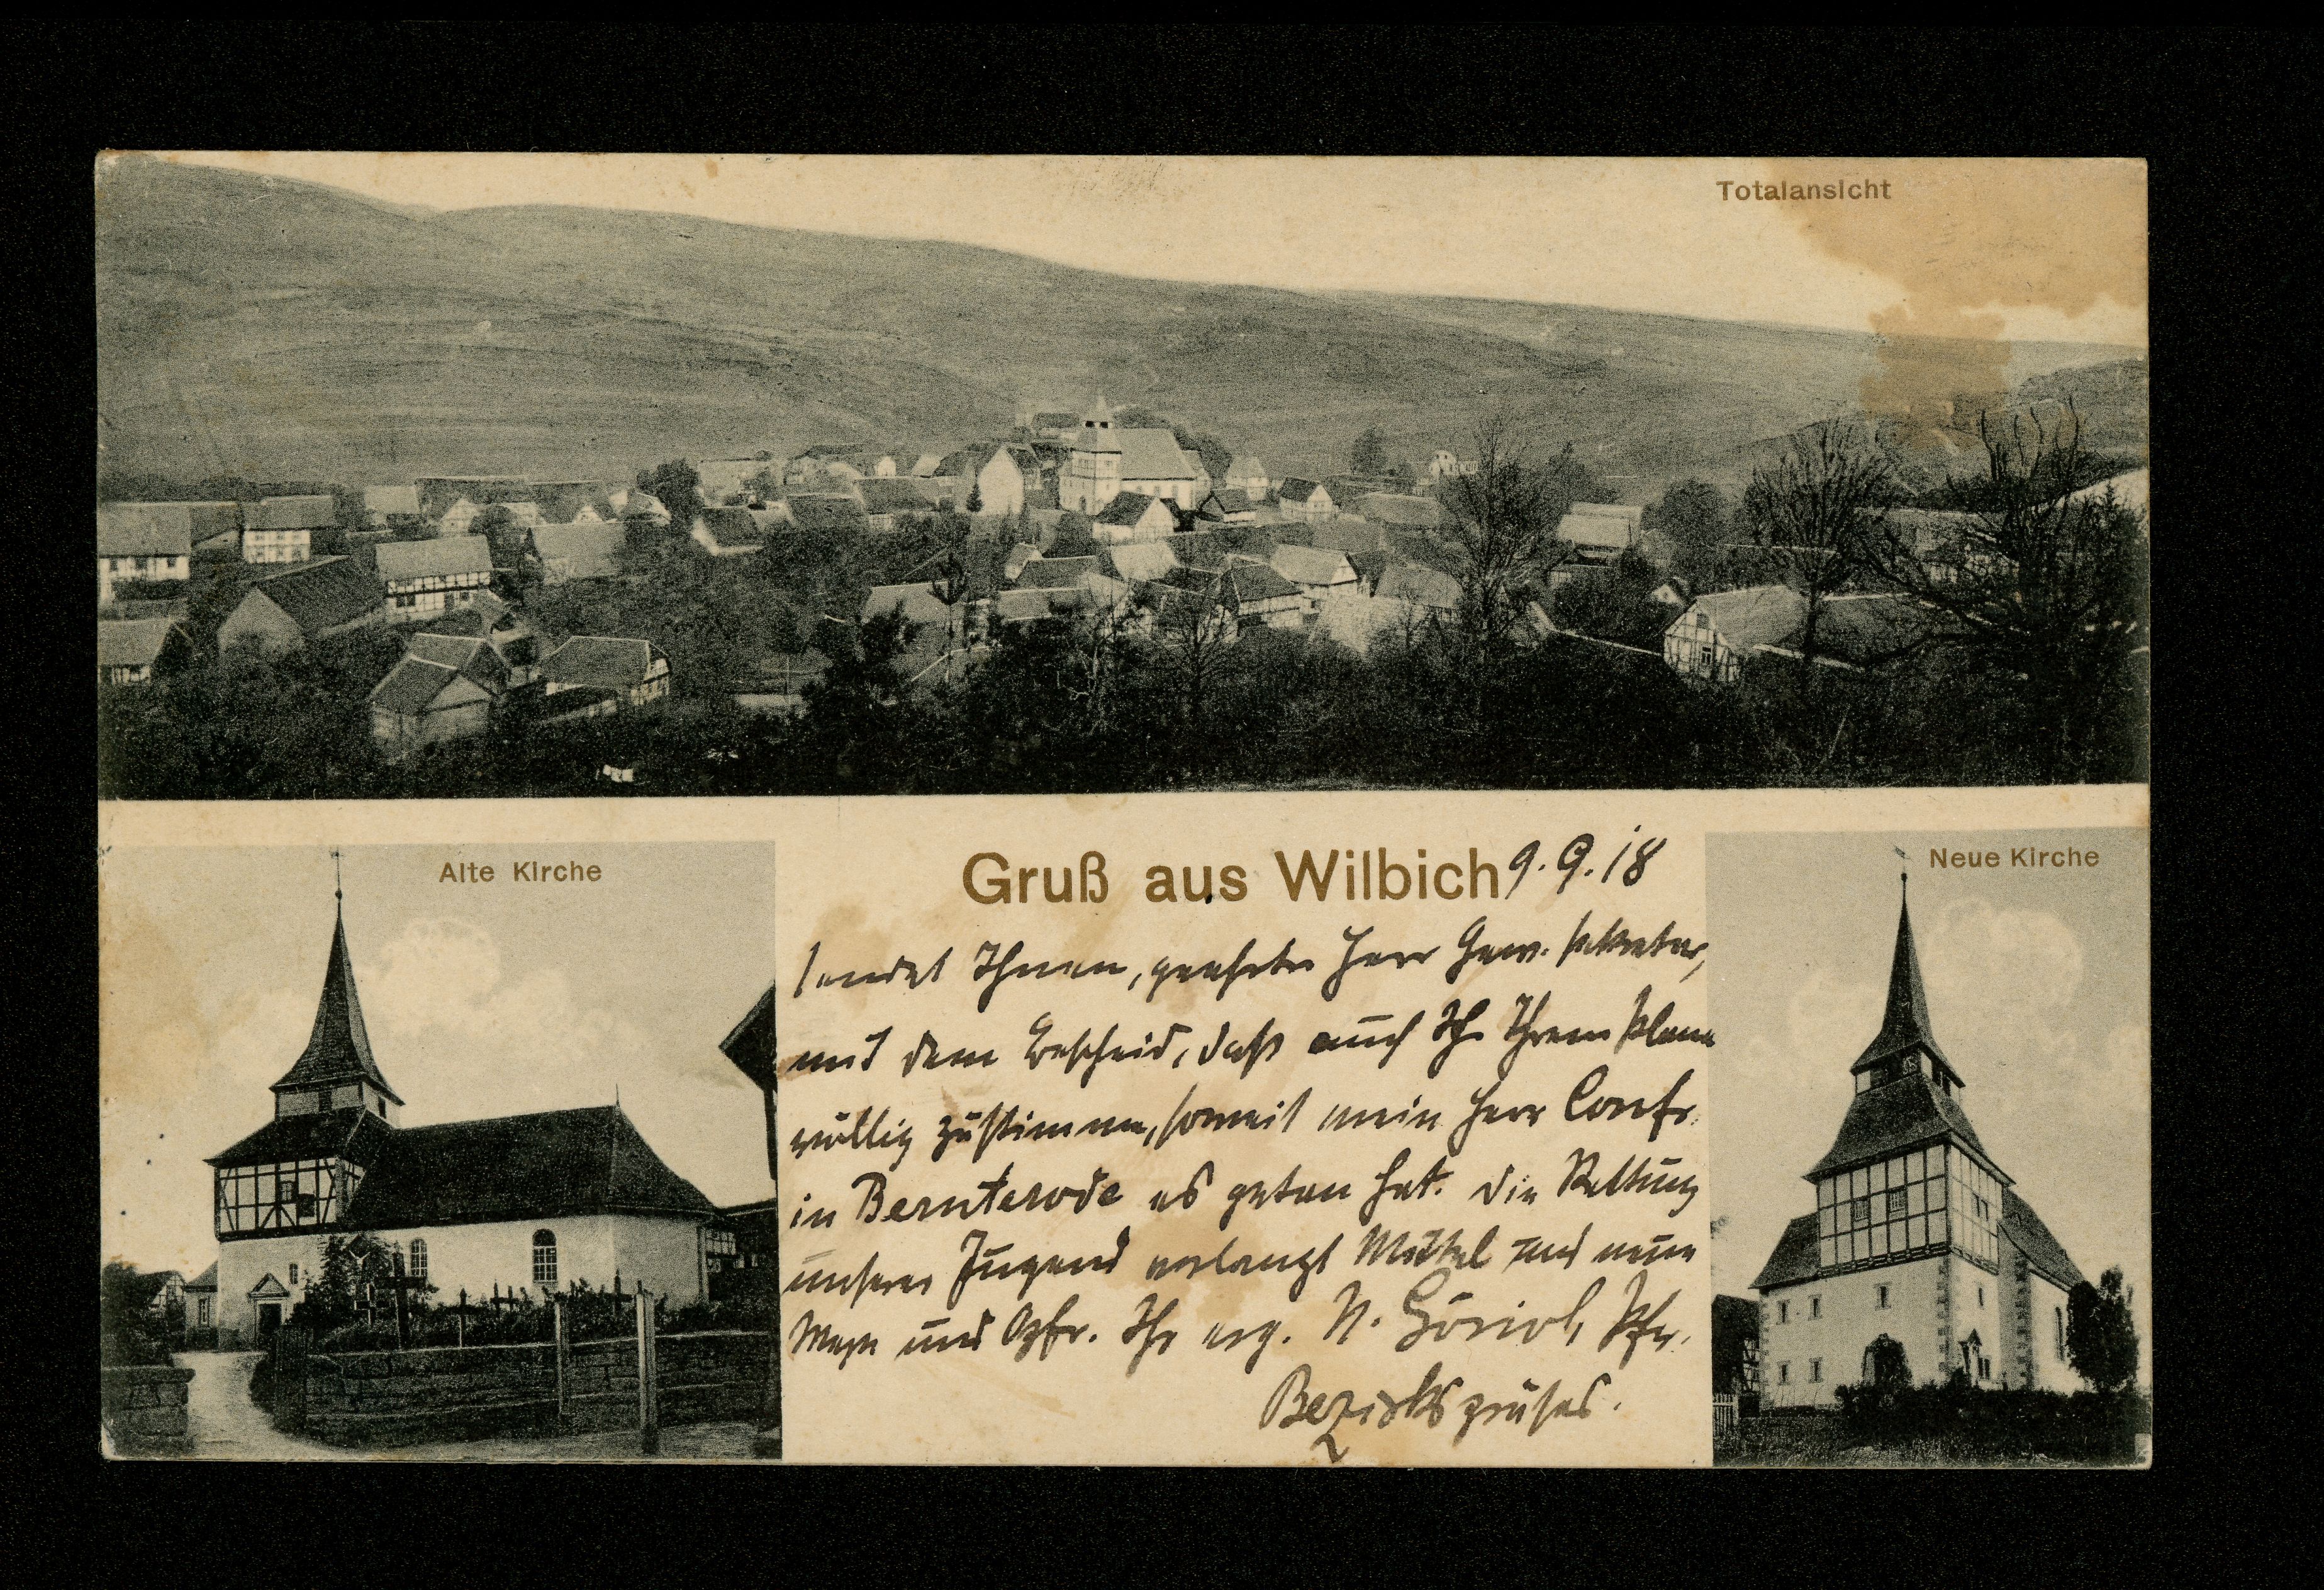 Totalansicht
Alte Kirche
Neue Kirche
Gruß aus Wilbich 9.9.18
sendet Ihnen, geehrter Herr Gew. sekretär,
mit dem Bescheid, daß auch Ihrem Plane
völlig zustimme, soweit mein Herr Confr.
in Bernterode es getan hat. Die Rettung
unserer Jugend verlangt Mittel und neue
Wege und Opfr. Ihr erg. N. Pfr.
Bezirkspräses.